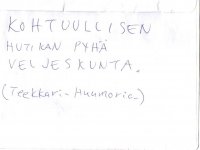 KOHTUULLISEN
HUTIKAN PYHÄ
VELJESKUNTA.
(Teekkari-Huumorie-)